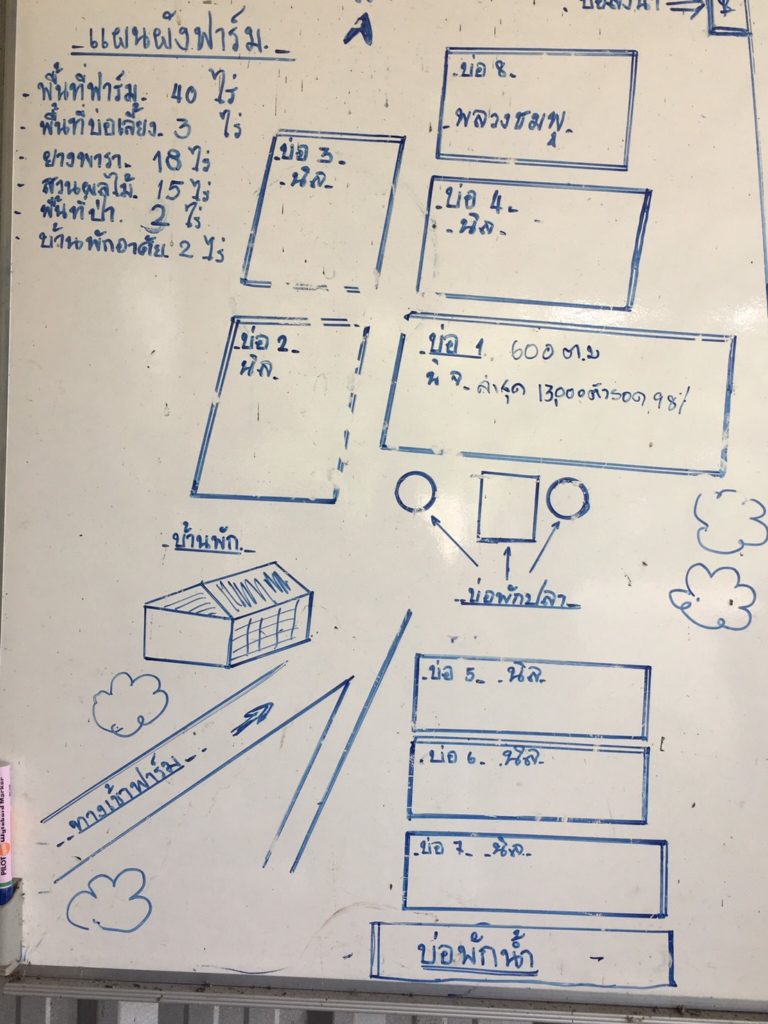 แผนผังฟาร์ม
- พื้นที่ฟาร์ม 40 ไร่
- พื้นที่บ่อเลี้ยง 3 ไร่
- ยางพารา 18 ไร่
- สวนผลไม้ 15 ไร่
- พื้นที่ป่า 2 ไร่
- บ้านพักอาศัย 2 ไร่
บ่อ 8
พลวงชมพู
บ่อ 3
นิล
บ่อ 4
นิล
บ่อ 2
นิล
บ่อ 1 600 ต.ม
นิล ล่าสุด 13,000 ตัวรอด 98%
บ้านพัก
บ่อพักปลา
บ่อ 5 นิล
บ่อ 6 นิล
ทางเข้าฟาร์ม
บ่อ 7 นิล
บ่อพักน้ำ
PILOT Wyteboard Marker